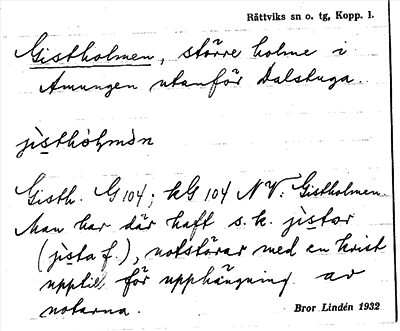 Rättviks sn o. tg, Kopp. l.
Gistholmen, större holme i
Amungen utanför Dalstuga.
jìsthòlmǝn
Gisth. G 104; kG 104 NV: Gistholmen.
Man har där haft s.k. jistor
(jista f.), notstörar med en krist
upptill för upphängning av
notarna.
Bror Lindén 1932